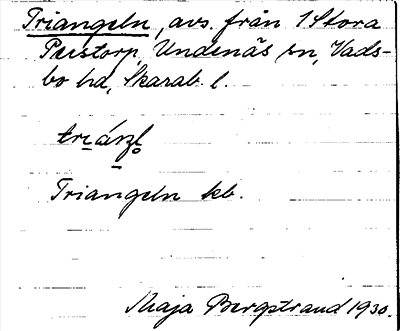 Triangeln, avs. från 1 Stora
Perstorp, Undenäs sn, Vads-
bo hd, Skarab. l.
Triangeln kb.
Maja Bergstrand 1930.